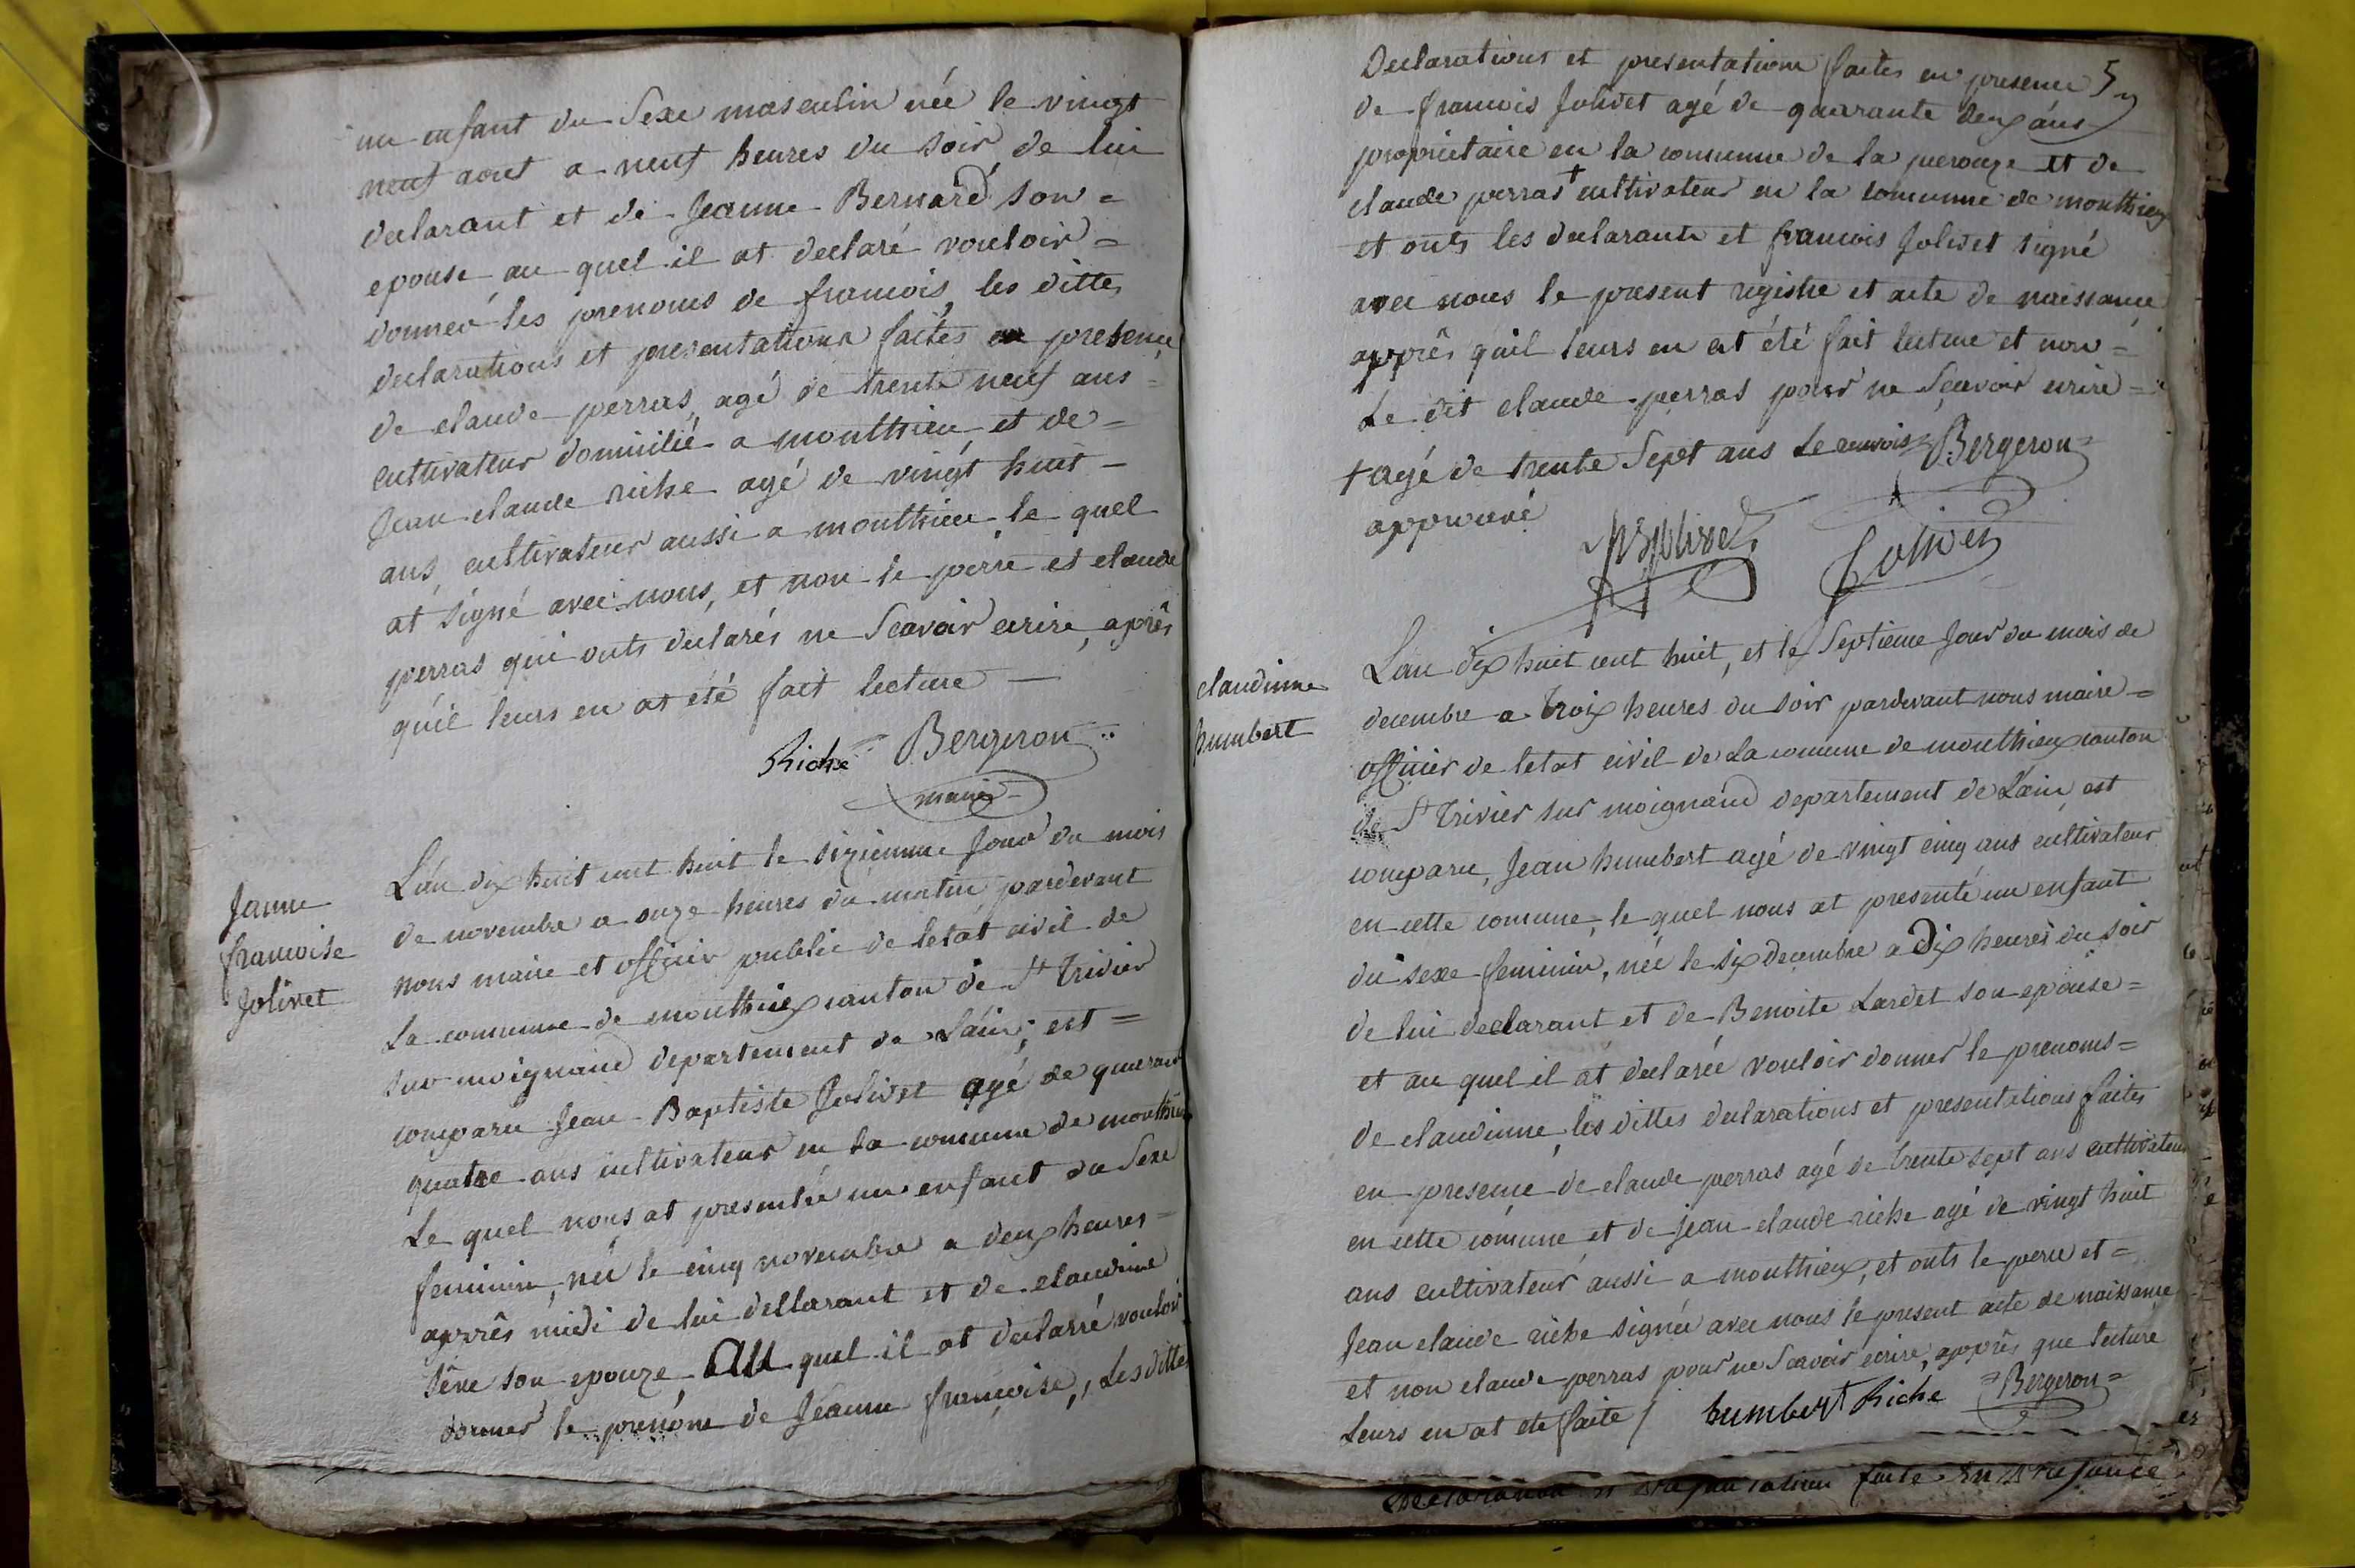 un enfant du Sexe masculin née le vingt
neuf aout a neuf heures du soir, de lui
declarant et de Jeanne Bernard son =
epouse au quel il at declaré vouloir =
donner les prenoms de francois, les dittes
declarations et presentations faites en presence
de claude perras, agé de trente neuf ans =
cultivateur domicilié a monthieu et de =
Jean claude riche agé de vingt huit -
ans, cultivateur aussi a monthieu le quel
at signé avec nous, et non le perre et claude
perras qui onts declarés ne Scavoir ecrire, après
qu'il leurs en at été fait lecture —
Riche Bergeron
maire
Janne
francoise
Jolivet
L'an dix huit cent huit le sixiemme Jour du mois
de novembre a onze heures du matin, pardevant
nous maire et officier public de letat civil de
La commune de monthieux canton de St Trivier
sur moignand departement de Lain; est =
comparu Jean Baptiste Jolivet agé de quarante
quatre ans cultivateur en la commune de monthieux
Le quel nous at presentée un enfant du Sexe
feminin, née le cinq novembre a deux heures =
apprês midi de lui dellarant et de claudine
sêve son epouze, Au quel il at declarré vouloir
donner le prenóme de Jeanne francoise,, Les dittes
Declarations et presentations faites en presence 5
de francois Jolivet agé de quarante deux ans
proprietaire en la commune de la perouze et de
claude perras + cultivateur en la commune de monthieux
et onts les declarants et francois Jolivet signé
avec nous le present registre et acte de naissance
apprês quil leurs en at été fait lecture et non =
Le dit claude perras pour ne Scavoir ecrire =
+ agé de trente Sept ans Bergeron
approuvé
Jolivet
claudinne
humbert
L'an dix huit cent huit, et le Septieme Jour du mois de
decembre a trois heures du soir pardevant nous maire =
officier de letat civil de La comune de monthieux canton
de St Trivier sur moignand departement de Lain, est
comparu, Jean humbert agé de vingt cinq ans cultivateur
en cette comune, le quel nous at presenté un enfant
du sexe feminin, née le six decembre a dix heures du soir
de lui declarant et de Benoite Lardet son epouse =
et au quel il at declarée vouloir donner le prenoms =
de claudinne, les dittes declarations et presentations faites
en presence de claude perras agé de trente sept ans cultivateur
en cette comune et de jean claude riche agé de vingt huit
ans cultivateur aussi a monthieux, et onts le perre et =
Jean claude riche signée avec nous le present acte de naissance
et non claude perras pour ne Scavoir ecrire, apprês que lecture
Leurs en at ete faite / humbert Riche = Bergeron =
faite en presance